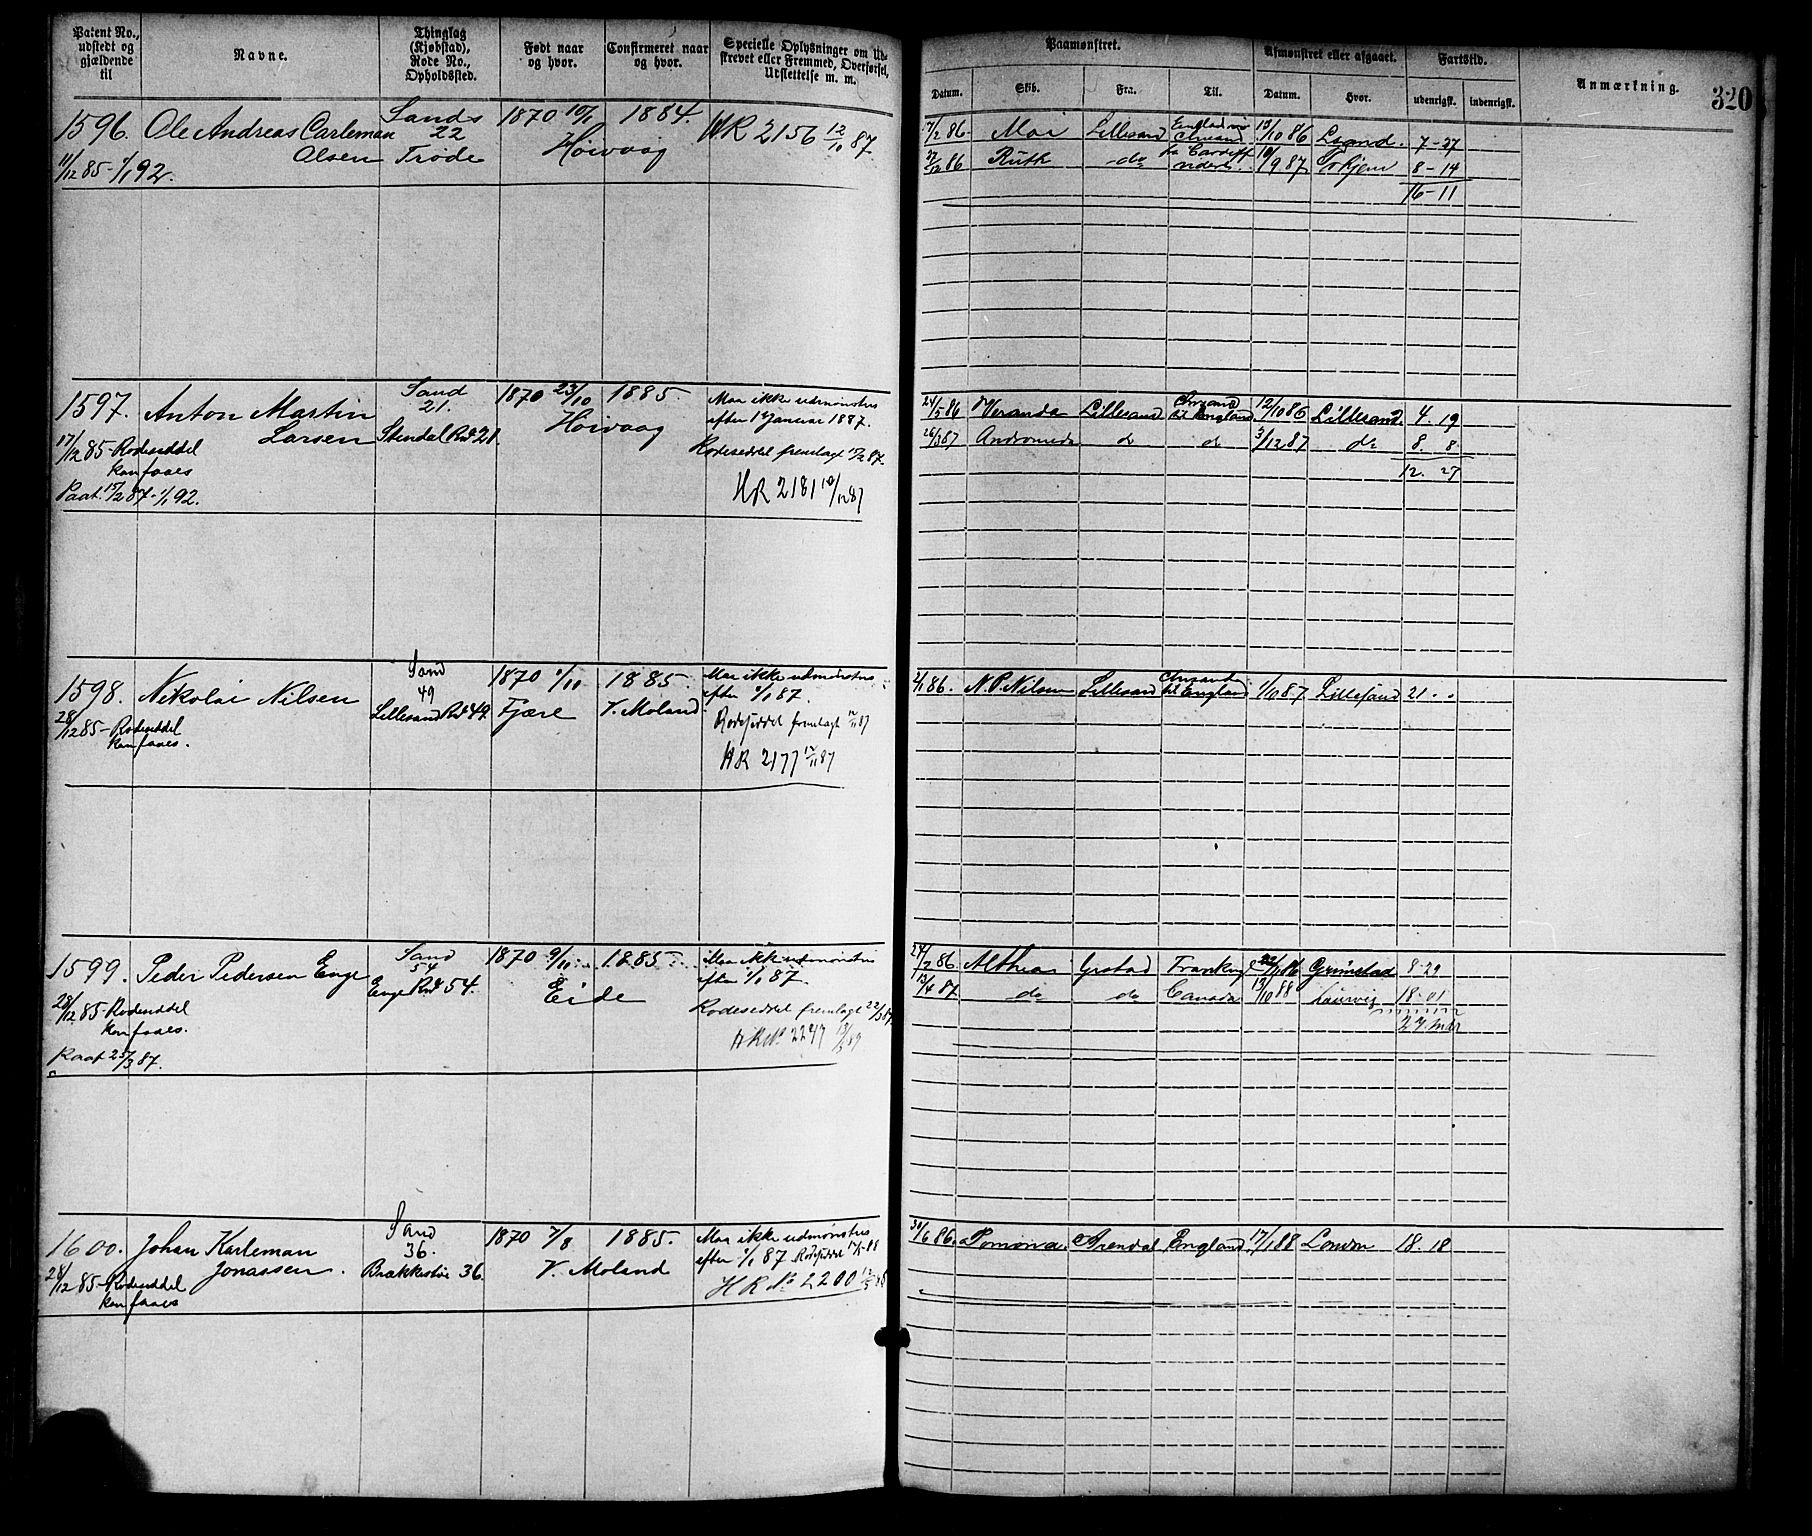 Patent No., udstedt og gjældende til
Navne.
Thinglag (Kjøbstad), Rode No., Opholdssted.
Født naar og hvor.
Confirmeret naar og hvor.
Specielle Oplysninger om Ud-
skrevet eller Fremmed, Overførsel,
Udslettelse m. m.
Paamønstret.
Afmønstret eller afgaaet.
Fartstid.
Anmærkning.
320
Datum.
Skib.
Fra.
Til.
Datum.
Hvor.
udenrigsk.
indenrigsk.
1596. Ole Andreas Carleman
Olsen
11/12 85 - 1/1 92.
Sands
22
Trøde
1870 10/1
1884.
Høivaag
HR 2156 12/10 87
17/2 86 Moi Lillesand 13/10 86 Lsand. 7-27
27/12 86 Ruth do 10/9 87 8-14
16-11
1597. Anton Martin
Larsen
17/12 85 - Rodeseddel
kan faaes
Paat. 15/2 87 - 1/1 92.
Sand
21.
Stendal Rd 21
1870 23/10
1885.
Høivaag
Maa ikke udmønstres
efter 1 Januar 1887.
Rodeseddel fremlagt 15/2 87.
HR 2181 10/12 87
24/5 86 Veranda Lillesand Chrsand til England 12/10 86 Lillesand. 4. 19
26/3 87 Andromeda d d 3/12 87 do 8. 8
12. 27
1598. Nikolai Nilsen
28/12 85 - Rodeseddel
kan faaes.
Sand
49
Lillesand Rd 49
1870 1/11
Fjære
1885.
V. Moland
Maa ikke udmønstres
efter 1/1 87.
Rodeseddel fremlagt 12/11 87
HR 2177 12/11 87
2/1 86. N. P. Nilsen Lillesand Chrsand til England 1/10 87 Lillesand 21 . .
1599. Peder Pedersen Enge
28/12 85 - Rodeseddel
kan faaes.
Paat 25/3 87.
Sand
54
Enge Rd 54.
1870 9/11
1885
Eide
Maa ikke udmønstres
efter 1/1 87.
Rodeseddel fremlagt 22/3 87
HR No 2247
24/2 86 Althea Grstad Grimstad 8-29
13/4 87 do do Canada 13/10 88 Laurvig 18-01
27 Mdr
1600. Johan Karleman
Jonassen.
28/12 85 - Rodeseddel
kan faaes
Sand
36.
Brækkestø 36.
1870 7/8
1885.
V. Moland
Maa ikke udmønstres
efter 1/1 87 Rodeseddel
HR No 2200
30/6 86. Pomona. Arendal England. 17/1 88 London 18. 18